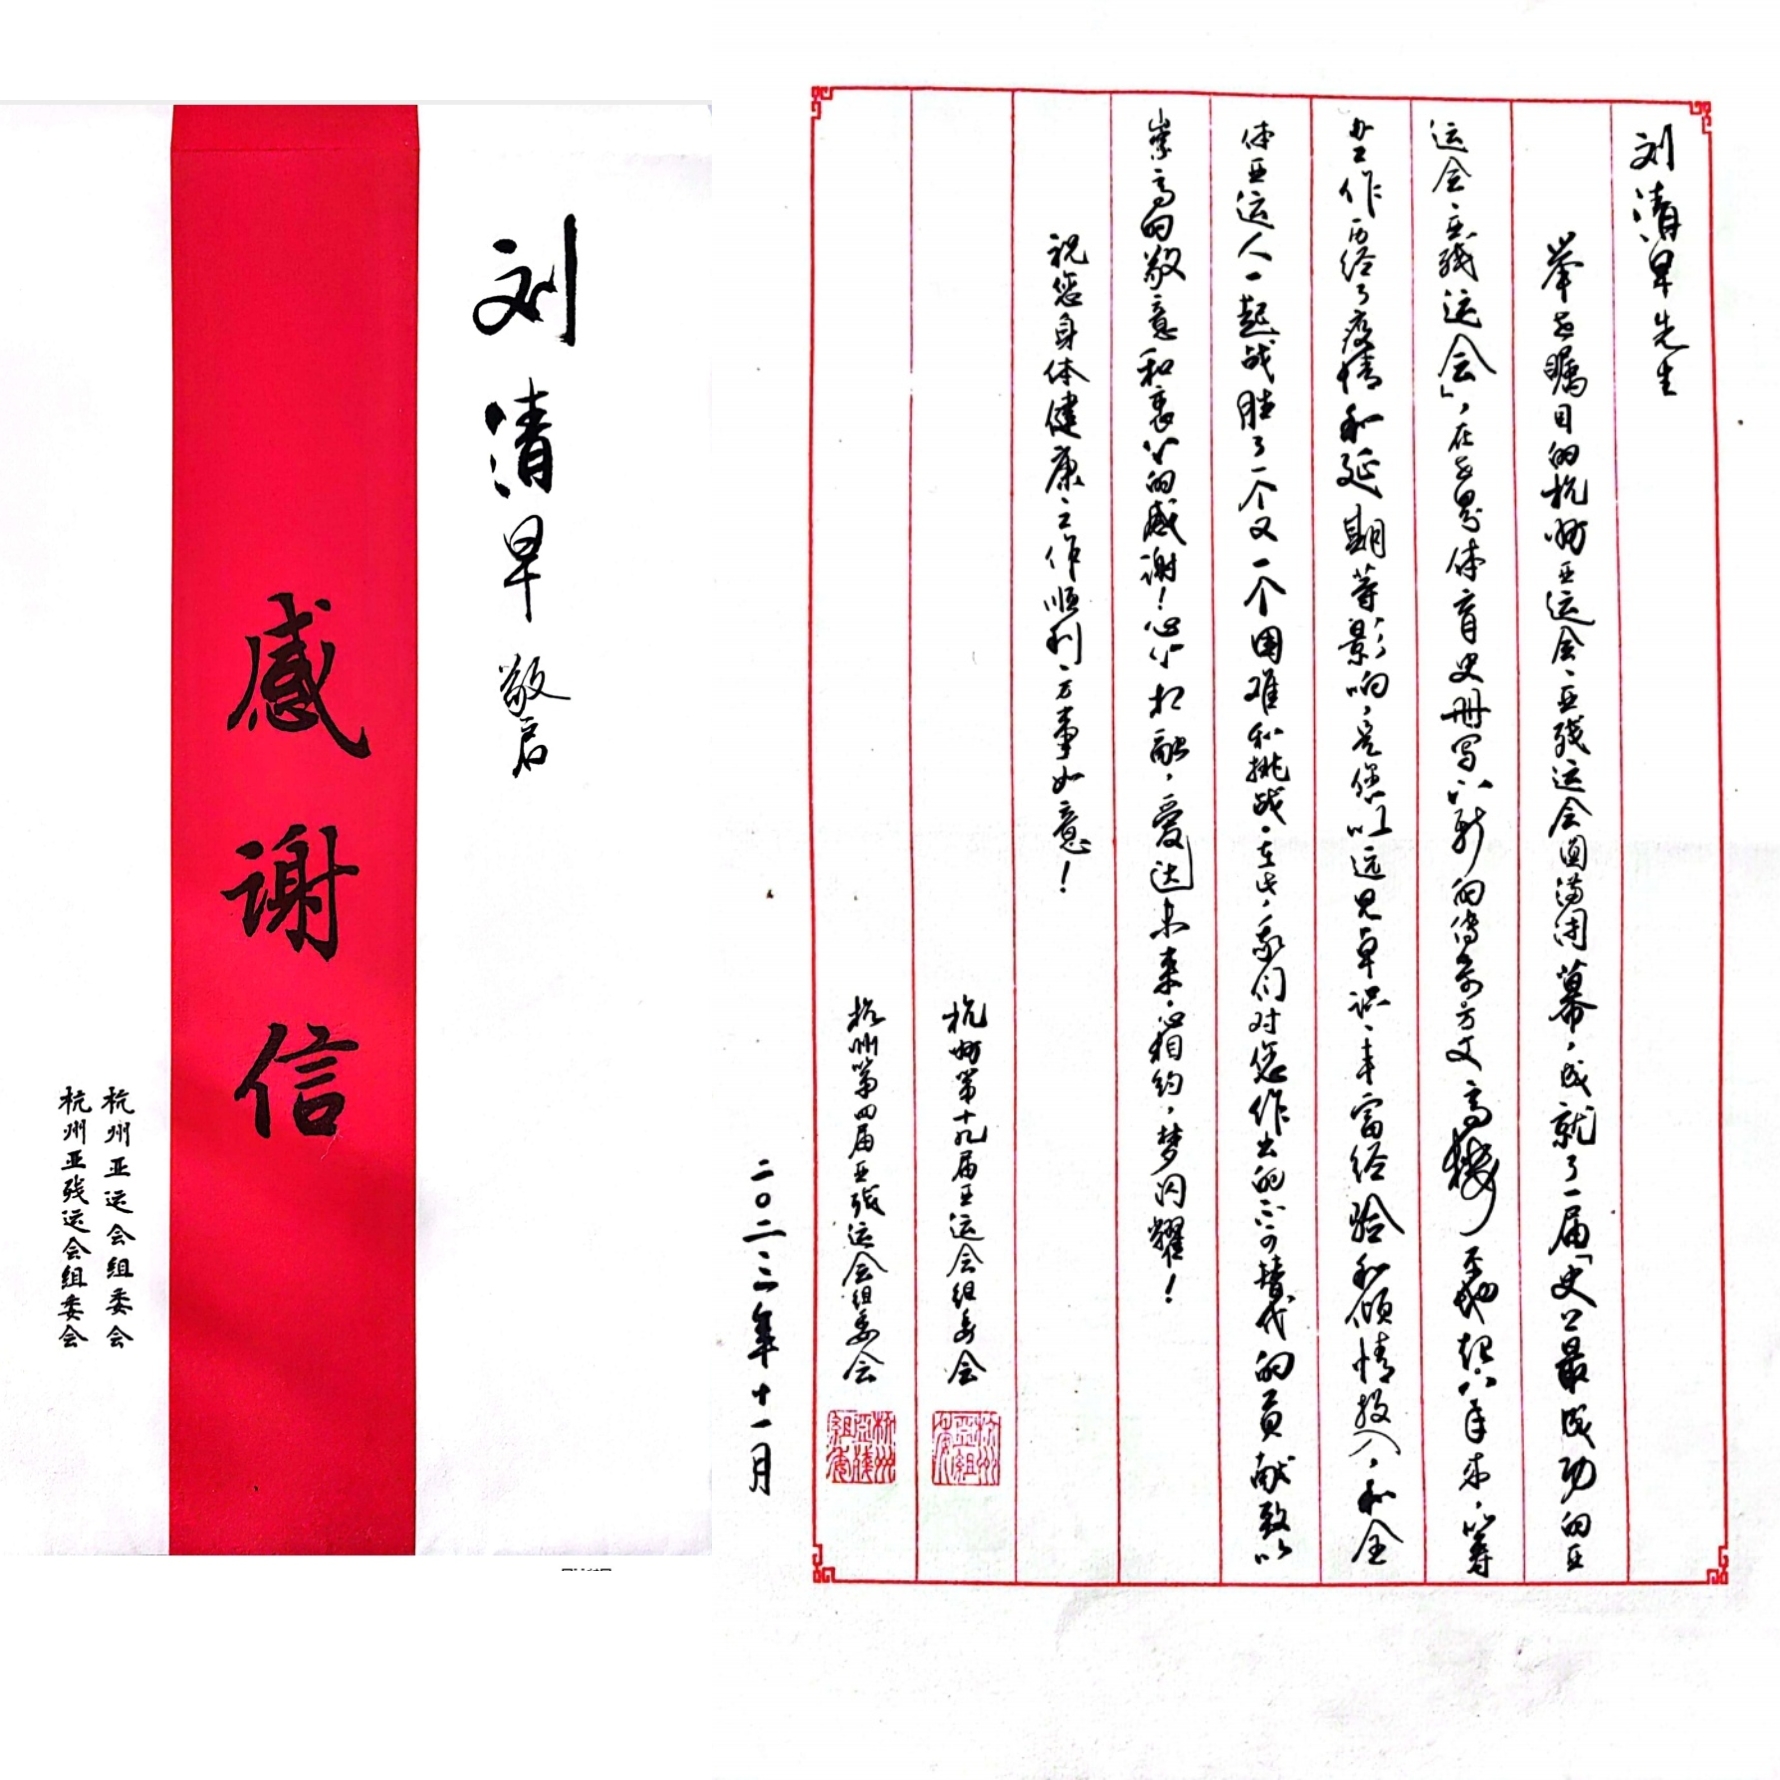 刘清早敬启
感谢信
杭州亚运会组委会
杭州亚残运会组委会
刘清早先生
举世瞩目的杭州亚运会、亚残运会圆满闭幕，成就了一届「史上最成功的亚
运会、亚残运会」，在世界体育史册写下新的传奇方文高
办工作历经了疫情和延期等影响，是您以远见卓识、丰富经验和倾情投入，和全
体亚运人一起战胜了一个又一个困难和挑战。在此，我们对您作出的不可替代的贡献致以
崇高的敬意和衷心的感谢！心心相融，爱达未来。心相约，梦闪耀！
祝您身体健康、工作顺利、万事如意！
杭州第十九届亚运会组委会
杭州第四届亚残运会组委会
二〇二三年十一月